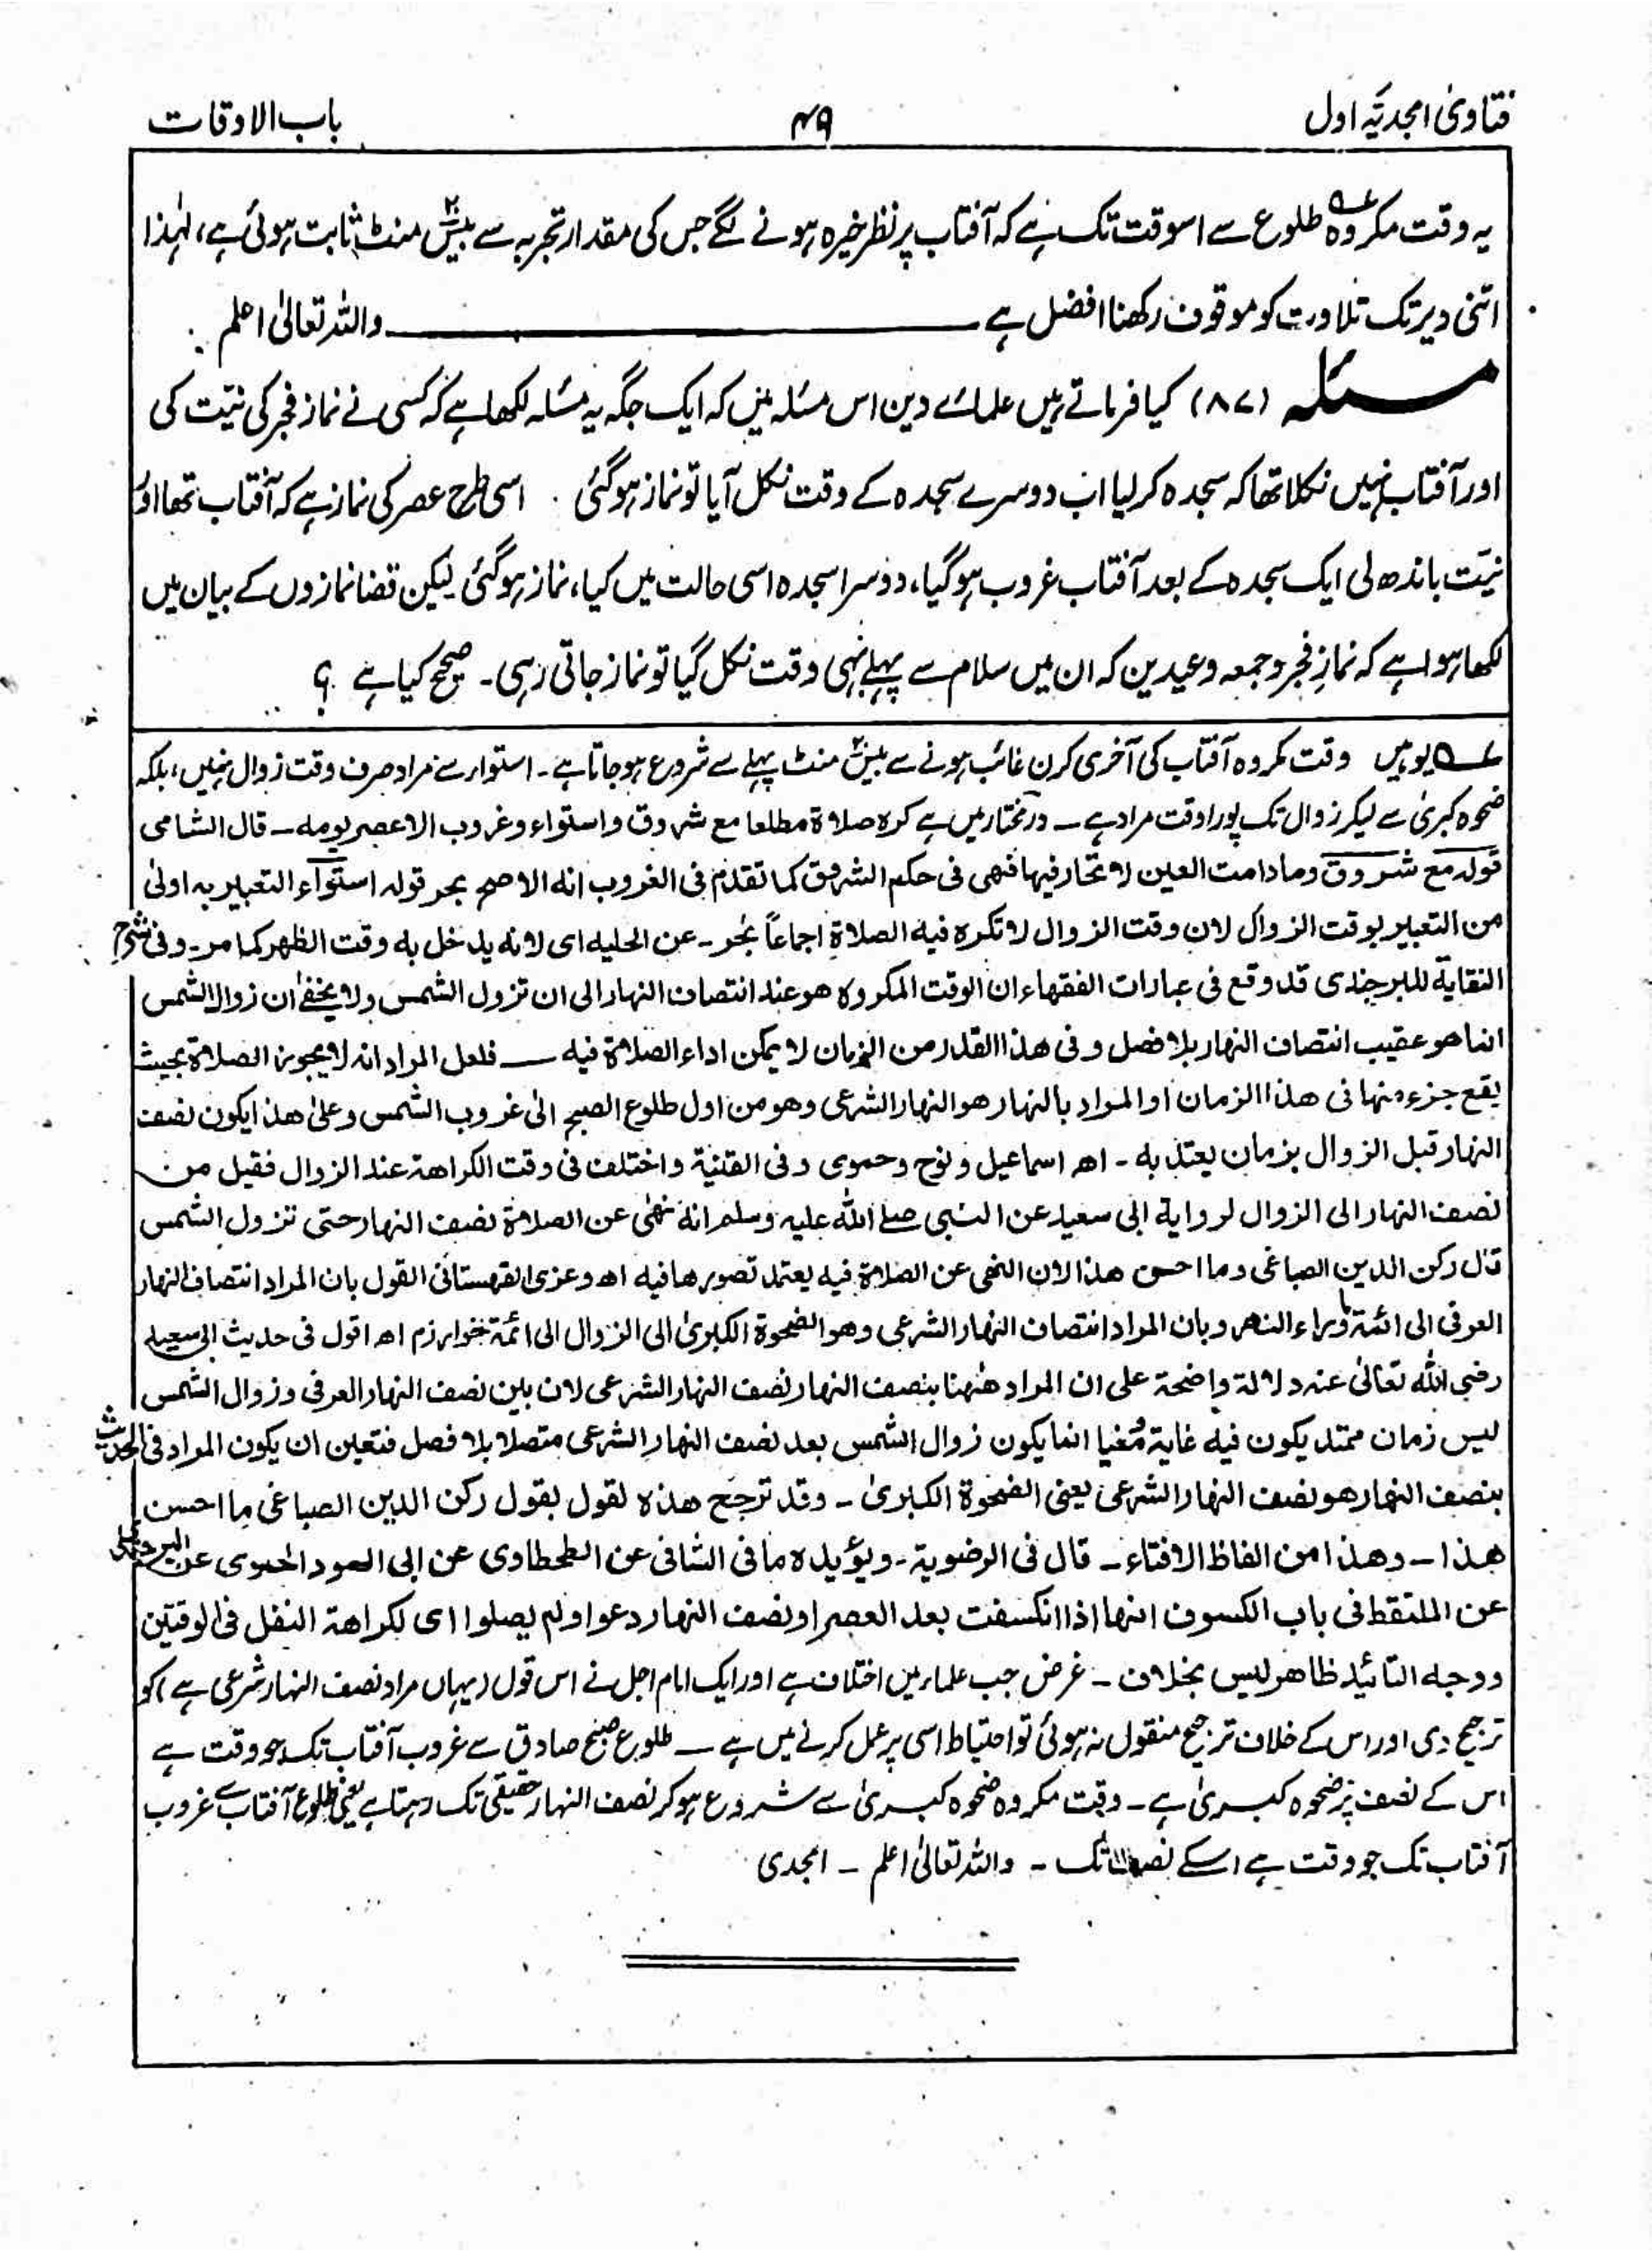 فتاویٰ امجدیہ اول
۴۹
باب الاوقات
یہ وقت مکروہ طلوع سے اسوقت تک ہے کہ آفتاب پر نظر خیرہ ہونے لگے جس کی مقدار تجربہ سے بیس۲۰ منٹ ثابت ہوئی ہے، لہٰذا
اتنی دیر تک تلاوت کو موقوف رکھنا افضل ہے ــــــ واللہ تعالیٰ اعلم
مسئلہ (۸۷) کیا فرماتے ہیں علمائے دین اس مسئلہ میں کہ ایک جگہ یہ مسئلہ لکھا ہے کہ کسی نے نماز فجر کی نیّت کی
اور آفتاب نہیں نکلا تھا کہ سجدہ کر لیا اب دوسرے سجدہ کے وقت نکل آیا تو نماز ہوگئی ۔ اسی طرح عصر کی نماز ہے کہ آفتاب تھا اور
نیّت باندھ لی ایک سجدہ کے بعد آفتاب غروب ہوگیا، دوسرا سجدہ اسی حالت میں کیا، نماز ہوگئی لیکن قضا نمازوں کے بیان میں
لکھا ہوا ہے کہ نمازِ فجر و جمعہ وعیدین کہ ان میں سلام سے پہلے بھی وقت نکل گیا تو نماز جاتی رہی۔ صحیح کیا ہے ؟
عہ یوہیں وقت مکروہ آفتاب کی آخری کرن غائب ہونے سے بیس۲۰ منٹ پہلے سے شروع ہو جاتا ہے ۔ استواء سے مراد صرف وقت زوال نہیں، بلکہ
ضحوہ کبریٰ سے لیکر زوال تک پورا وقت مراد ہے ــ درمختار میں ہے کرہ صلاۃ مطلقا مع شروق واستواء وغروب الا عصر یومہ ــ قال الشامی
قولہ مع شروق وما دامت العین لا تحار فیہا فھی فی حکم الشروق کما تقدم فی الغروب انہ الاصح بحر قولہ استواء التعبیر بہ اولیٰ
من التعبیر بوقت الزوال لان وقت الزوال لا تکرہ فیہ الصلاۃ اجماعاً بحر۔ عن الحلیہ ای لانہ یدخل بہ وقت الظھر کما مر۔ وفی شرح
النقایۃ للبرجندی قد وقع فی عبارات الفقھاء ان الوقت المکروہ ھو عند انتصاف النہار الی ان تزول الشمس ولا یخفیٰ ان زوال الشمس
انما ھو عقیب انتصاف النہار بلا فصل وفی ھذا القدر من الزمان لا یمکن اداء الصلاۃ فیہ ــ فلعل المراد انہ لا یجوز الصلاۃ بحیث
یقع جزء منہا فی ھذا الزمان او المراد بالنہار ھو النہار الشرعی وھو من اول طلوع الصبح الیٰ غروب الشمس وعلیٰ ھذا یکون نصف
النہار قبل الزوال بزمان یعتد بہ ۔ اھ اسماعیل ونوح وحموی وفی القنیۃ واختلف فی وقت الکراھۃ عند الزوال فقیل من
نصف النہار الی الزوال لروایۃ ابی سعید عن النبی صلے اللہ علیہ وسلم انہ نھیٰ عن الصلاۃ نصف النہار حتی تزول الشمس
قال رکن الدین الصباغی وما احسن ھذا لان النھی عن الصلاۃ فیہ یعتمد تصورھا فیہ اھ وعزی القھستانی القول بان المراد انتصاف النہار
العرفی الی ائمۃ ما وراء النھر وبان المراد انتصاف النہار الشرعی وھو الضحوۃ الکبریٰ الی الزوال الی ائمۃ خوارزم اھ اقول فی حدیث ابی سعید
رضی اللہ تعالیٰ عنہ دلالۃ واضحۃ علی ان المراد ھٰھنا بنصف النہار نصف النہار الشرعی لان بین نصف النہار العرفی وزوال الشمس
لیس زمان ممتد یکون فیہ غایۃ مُغیا انما یکون زوال الشمس بعد نصف النہار الشرعی متصلا بلا فصل فتعین ان یکون المراد فی الحدیث
بنصف النہار ھو نصف النہار الشرعی یعنی الضحوۃ الکبریٰ ۔ وقد ترجح ھذہ لقول بقول رکن الدین الصباغی ما احسن
ھذا ــ وھذا من الفاظ الافتاء ــ قال فی الرضویۃ ۔ ویؤیدہ ما فی الشافی عن الطحطاوی عن ابی السعود الحموی عن البرجندی
عن الملتقط فی باب الکسوف انھا اذا انکسفت بعد العصر او نصف النہار دعوا ولم یصلوا ای لکراھۃ النفل فی الوقتین
ووجہ التائید ظاھر لیس بخلاف ۔ غرض جب علماء میں اختلاف ہے اور ایک امام اجل نے اس قول (یہاں مراد نصف النہار شرعی ہے) کو
ترجیح دی اور اس کے خلاف ترجیح منقول نہ ہوئی تو احتیاط اسی پر عمل کرنے میں ہے ــ طلوع صبح صادق سے غروب آفتاب تک جو وقت ہے
اس کے نصف پر ضحوہ کبریٰ ہے ۔ وقت مکروہ ضحوہ کبریٰ سے شروع ہو کر نصف النہار حقیقی تک رہتا ہے یعنی طلوع آفتاب سے غروب
آفتاب تک جو وقت ہے اسکے نصف تک ۔ واللہ تعالیٰ اعلم ۔ امجدی